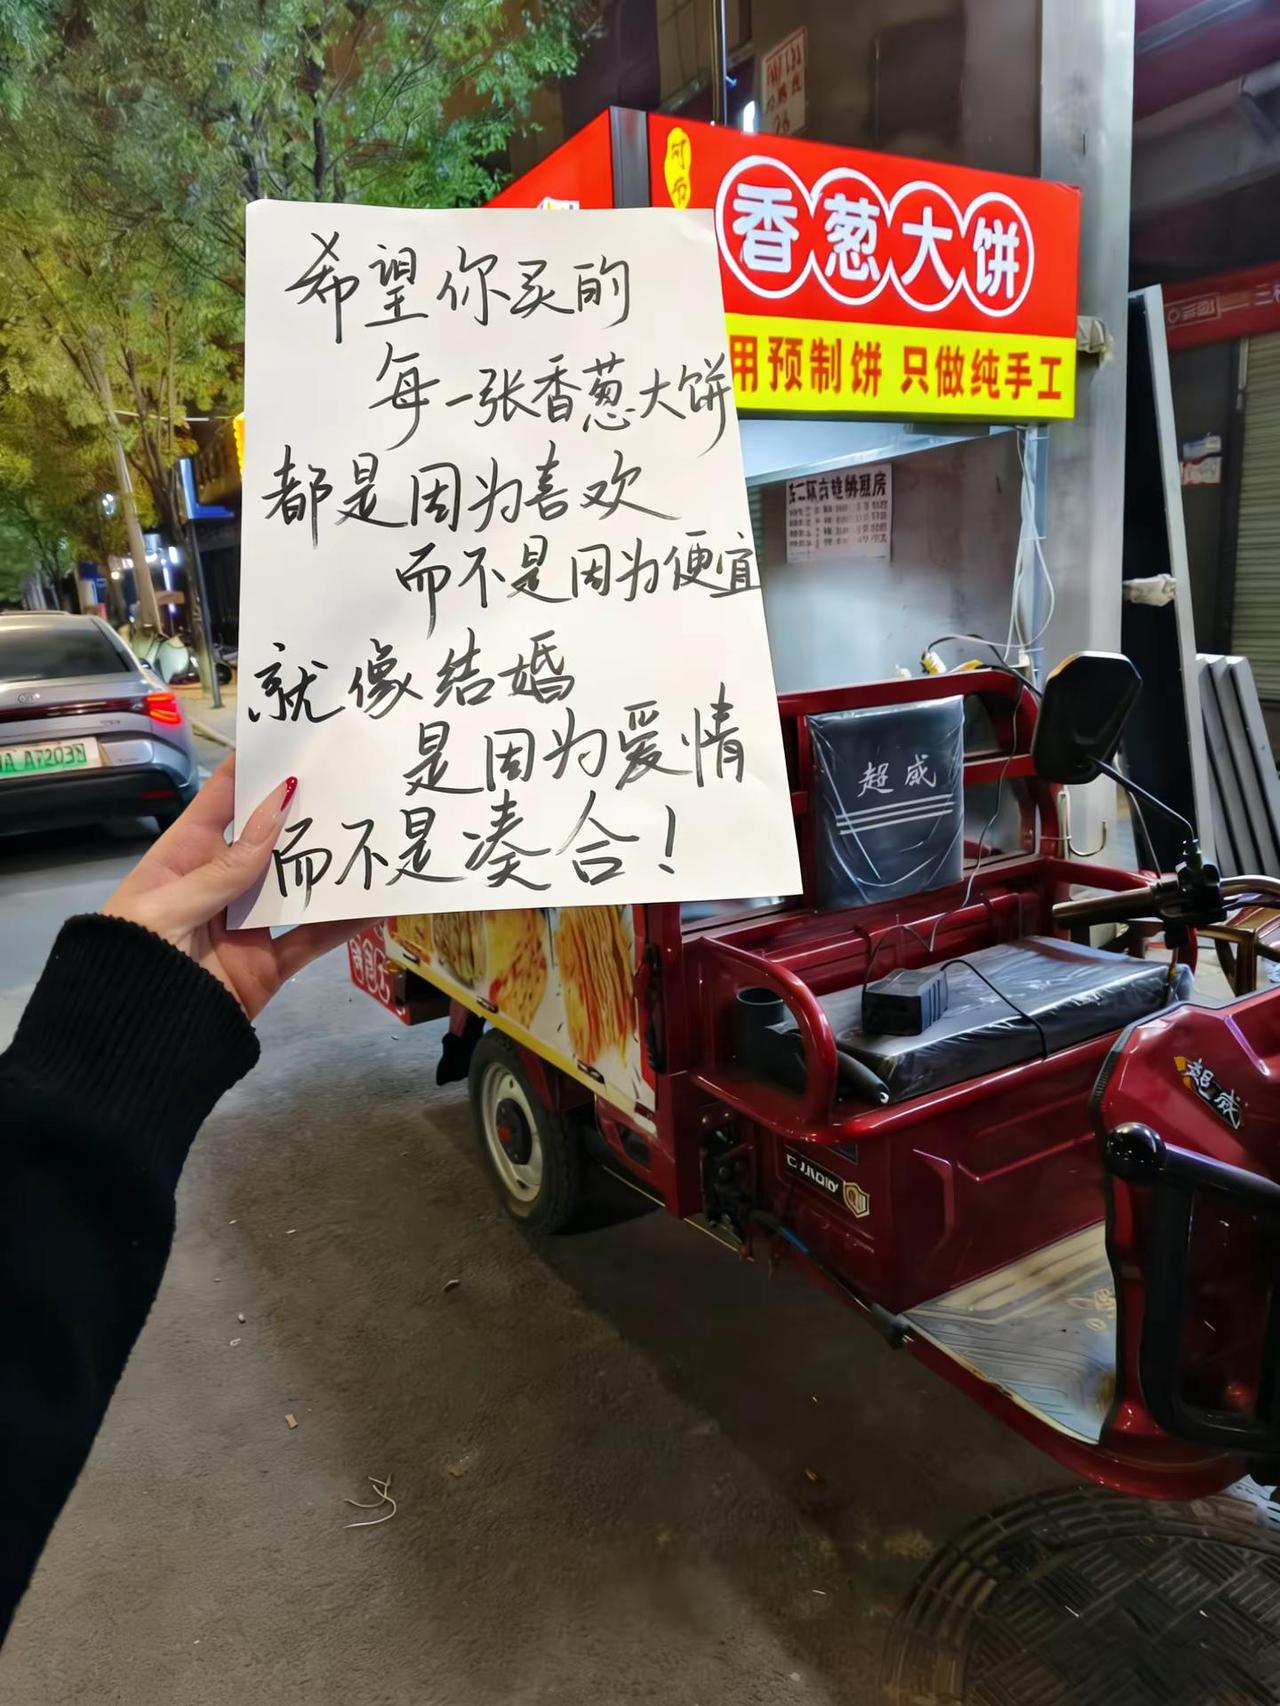 希望你买的
每一张香葱大饼
都是因为喜欢
而不是因为便宜
就像结婚
是因为爱情
而不是凑合！
香葱大饼
用预制饼 只做纯手工
超威
超威
A·A7203